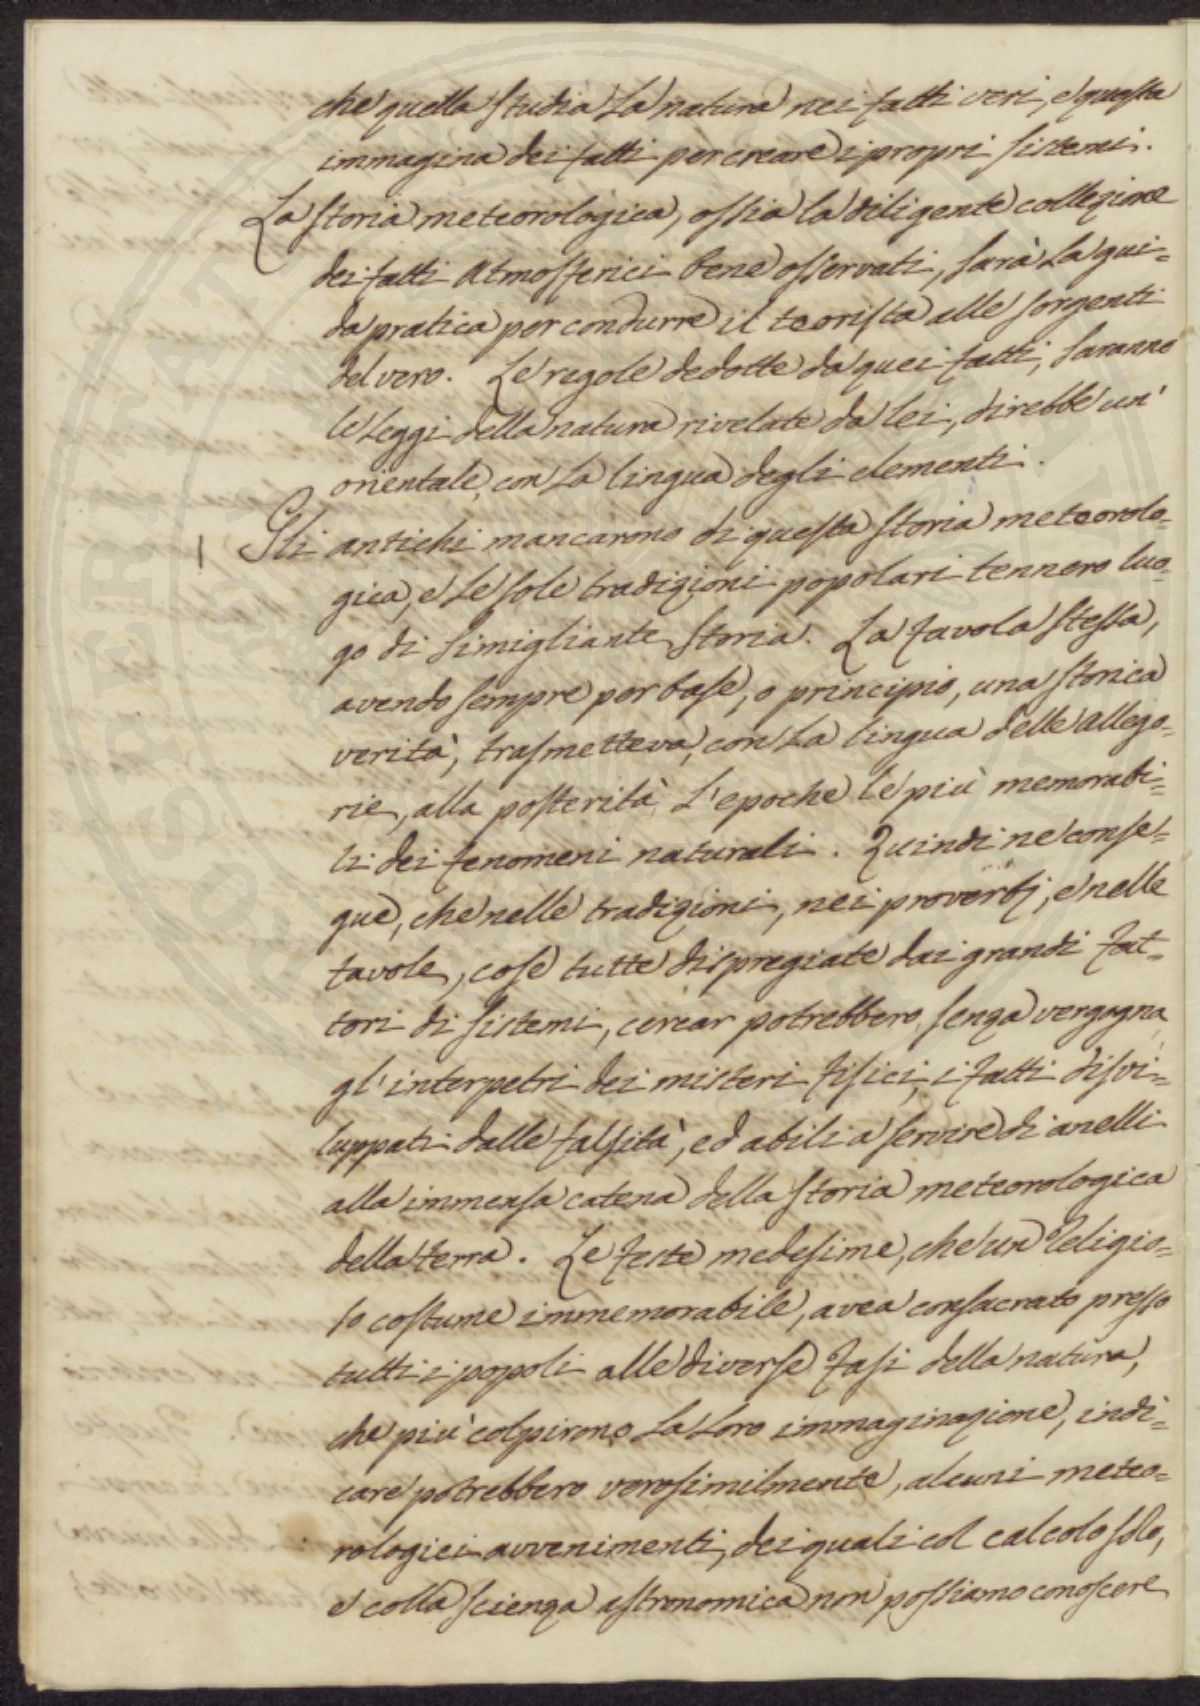 che quella studia la natura nei fatti veri, e questa
immagina dei fatti per creare i propri sistemi.
La storia meteorologica, ossia la diligente collezione
dei fatti atmosferici bene osservati, sarà la gui=
da pratica per condurre il teorista alle sorgenti
del vero. Le regole dedotte da quei fatti, saranno
le leggi della natura rivelate da lei, direbbe un'
orientale, con la lingua degli elementi.
Gli antichi mancarono di questa storia meteorolo=
gica, e le sole tradizioni popolari tennero luo=
go di simigliante storia. La favola stessa,
avendo sempre per base, o principio, una storica
verità, trasmetteva, con la lingua delle allego=
rie, alla posterità, l'epoche le più memorabi=
li dei fenomeni naturali. Quindi ne conse=
gue, che nelle tradizioni, nei proverbj, e nelle
favole, cose tutte dispregiate dai grandi fat=
tori di sistemi, cercar potrebbero, senza vergogna
gl'interpetri dei misteri fisici, i fatti disvi=
luppati dalle falsità, ed abili a servire di anelli
alla immensa catena della storia meteorologica
della terra. Le feste medesime, che un religio=
so costume immemorabile, avea consacrato presso
tutti i popoli alle diverse fasi della natura,
che più colpirono la loro immaginazione, indi=
care potrebbero verosimilmente, alcuni meteo=
rologici avvenimenti, dei quali col calcolo solo,
e colla scienza astronomica non possiamo conoscere
PROSPERITAT